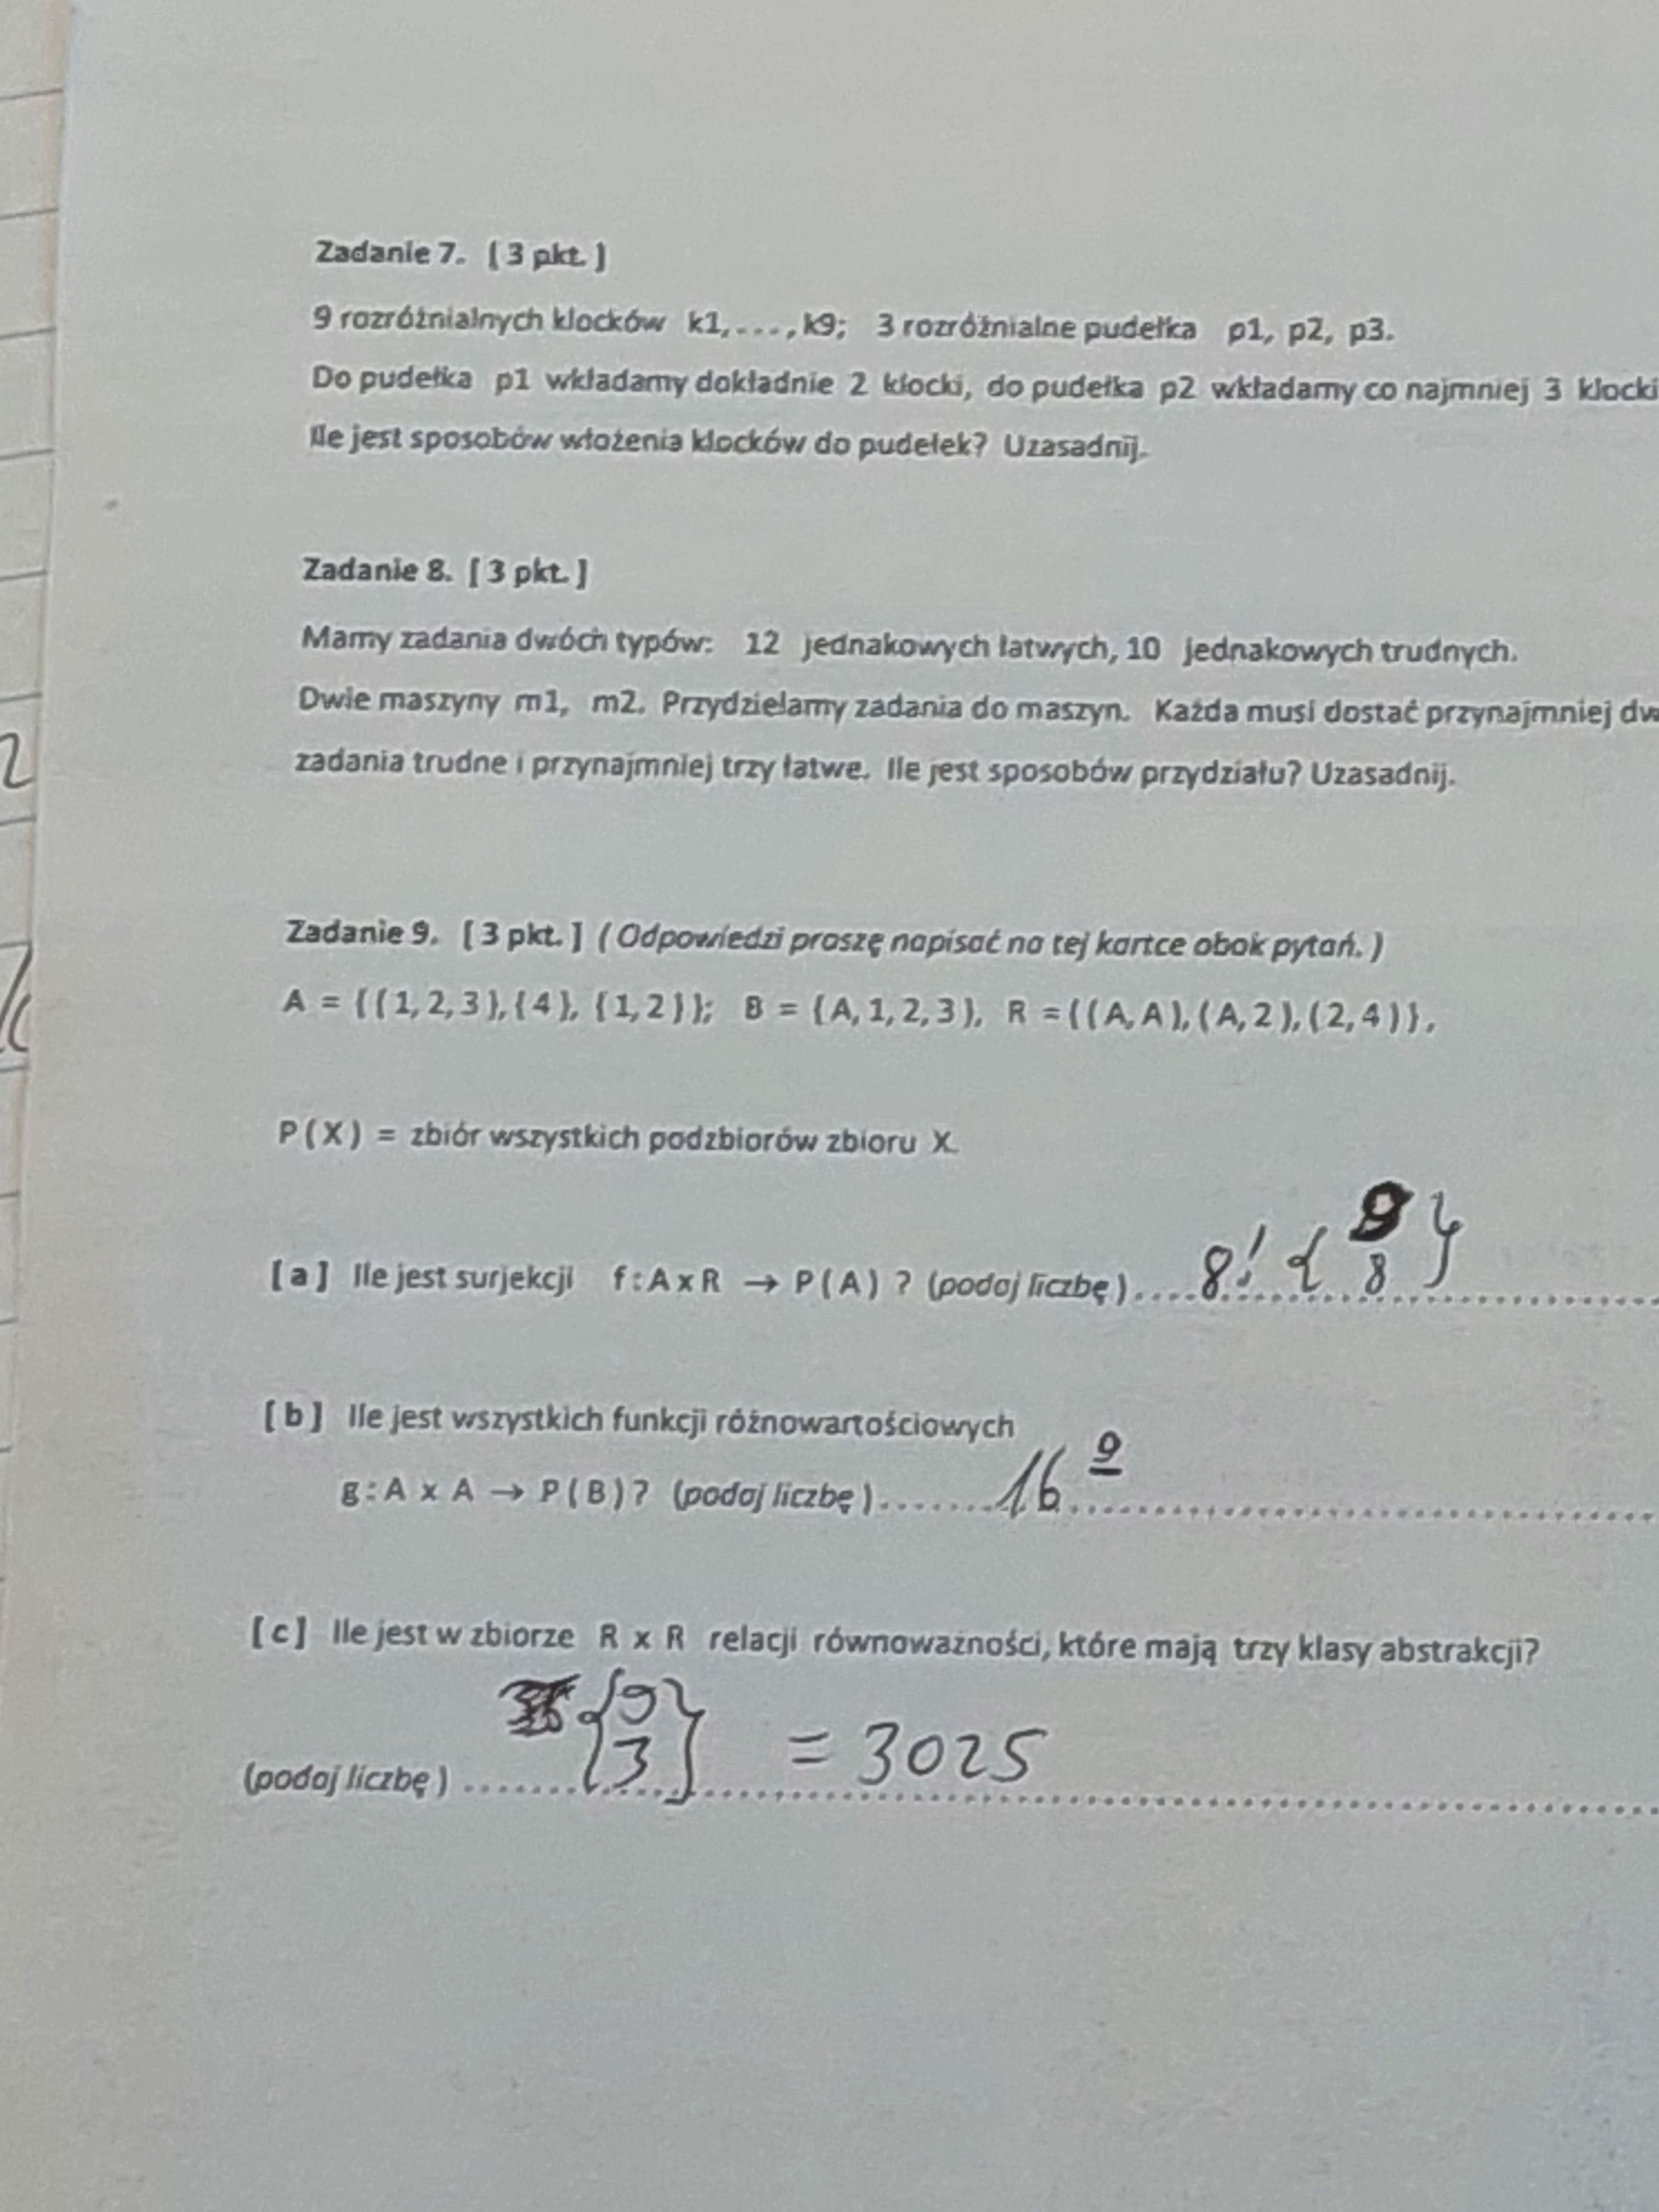 Zadanie 7. [ 3 pkt. ]
9 rozróżnialnych klocków k1,...,k9; 3 rozróżnialne pudełka p1, p2, p3.
Do pudełka p1 wkładamy dokładnie 2 klocki, do pudełka p2 wkładamy co najmniej 3 klocki
Ile jest sposobów włożenia klocków do pudełek? Uzasadnij.
Zadanie 8. [ 3 pkt. ]
Mamy zadania dwóch typów: 12 jednakowych łatwych, 10 jednakowych trudnych.
Dwie maszyny m1, m2. Przydzielamy zadania do maszyn. Każda musi dostać przynajmniej
zadania trudne i przynajmniej trzy łatwe. Ile jest sposobów przydziału? Uzasadnij.
Zadanie 9. [ 3 pkt. ] ( Odpowiedzi proszę napisać na tej kartce obok pytań. )
A = { { 1, 2, 3 }, { 4 }, { 1, 2 } }; B = { A, 1, 2, 3 }, R = { ( A, A ), ( A, 2 ), ( 2, 4 ) },
P ( X ) = zbiór wszystkich podzbiorów zbioru X.
[ a ] Ile jest surjekcji f : A x R → P ( A ) ? (podaj liczbę ).... 8! { 9 8 }
[ b ] Ile jest wszystkich funkcji różnowartościowych
g : A x A → P ( B ) ? (podaj liczbę )....... 16 9
[ c ] Ile jest w zbiorze R x R relacji równoważności, które mają trzy klasy abstrakcji?
(podaj liczbę ) ....... { 9 3 } = 3025